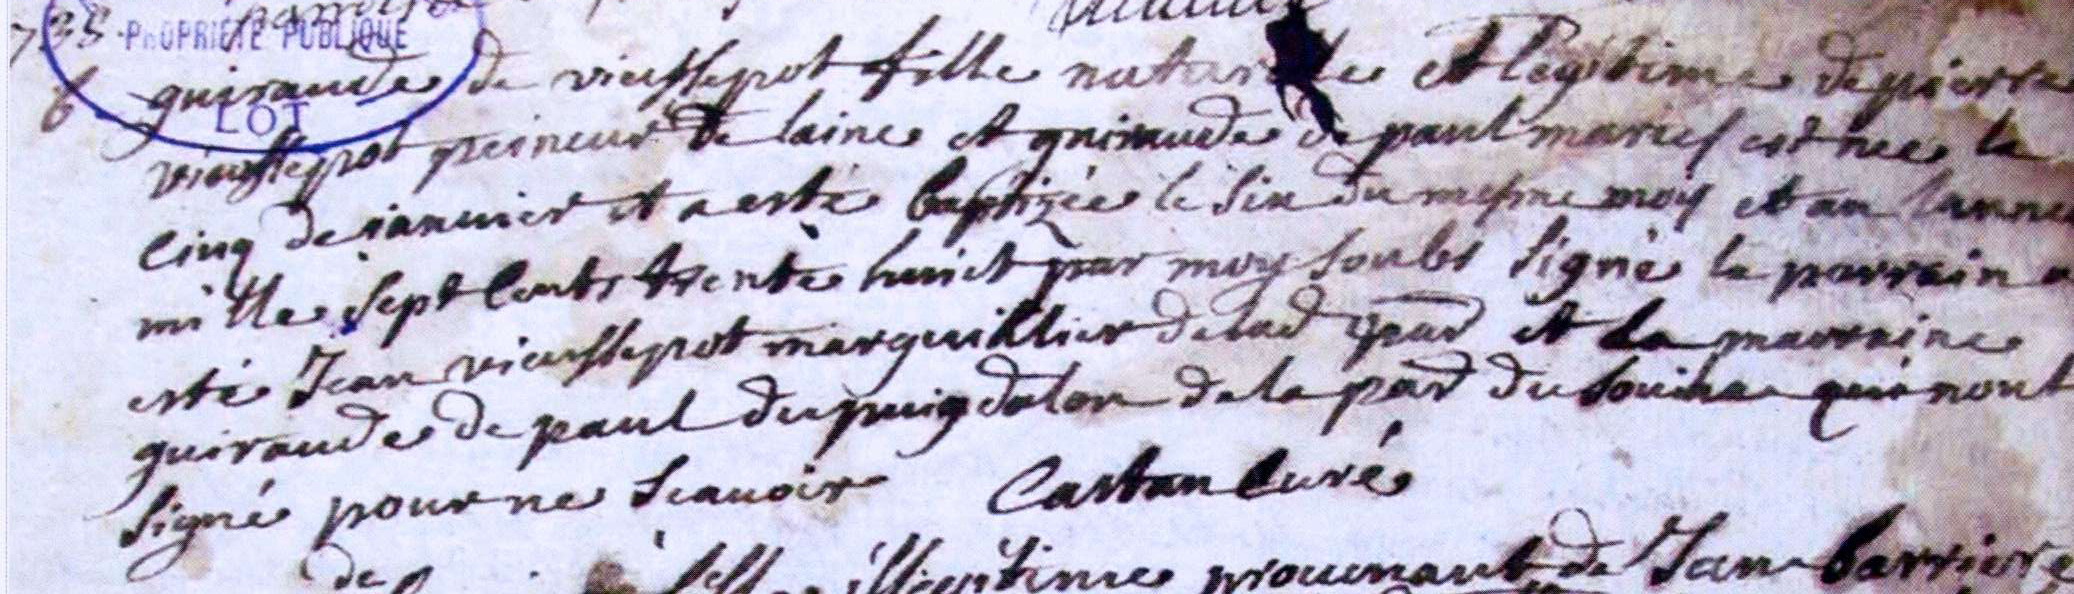 738.
PROPRIÉTÉ PUBLIQUE
LOT
6
guiraude de vieussepot fille naturelle et legitime de pierre
vieussepot peineur de laine et guiraude de paul mariés est nee le
cinq de ianuier et a esté baptizée le six du mesme moy et an lannee
mille sept cents trente huict par moy soubs signé le parrain a
esté Jean vieussepot marguillier de lad par et la marraine
guiraude de paul du puig dalon de la par du qui nont
signé pour ne scauoir Castan curé
illegitime prouenant de Jean barriere